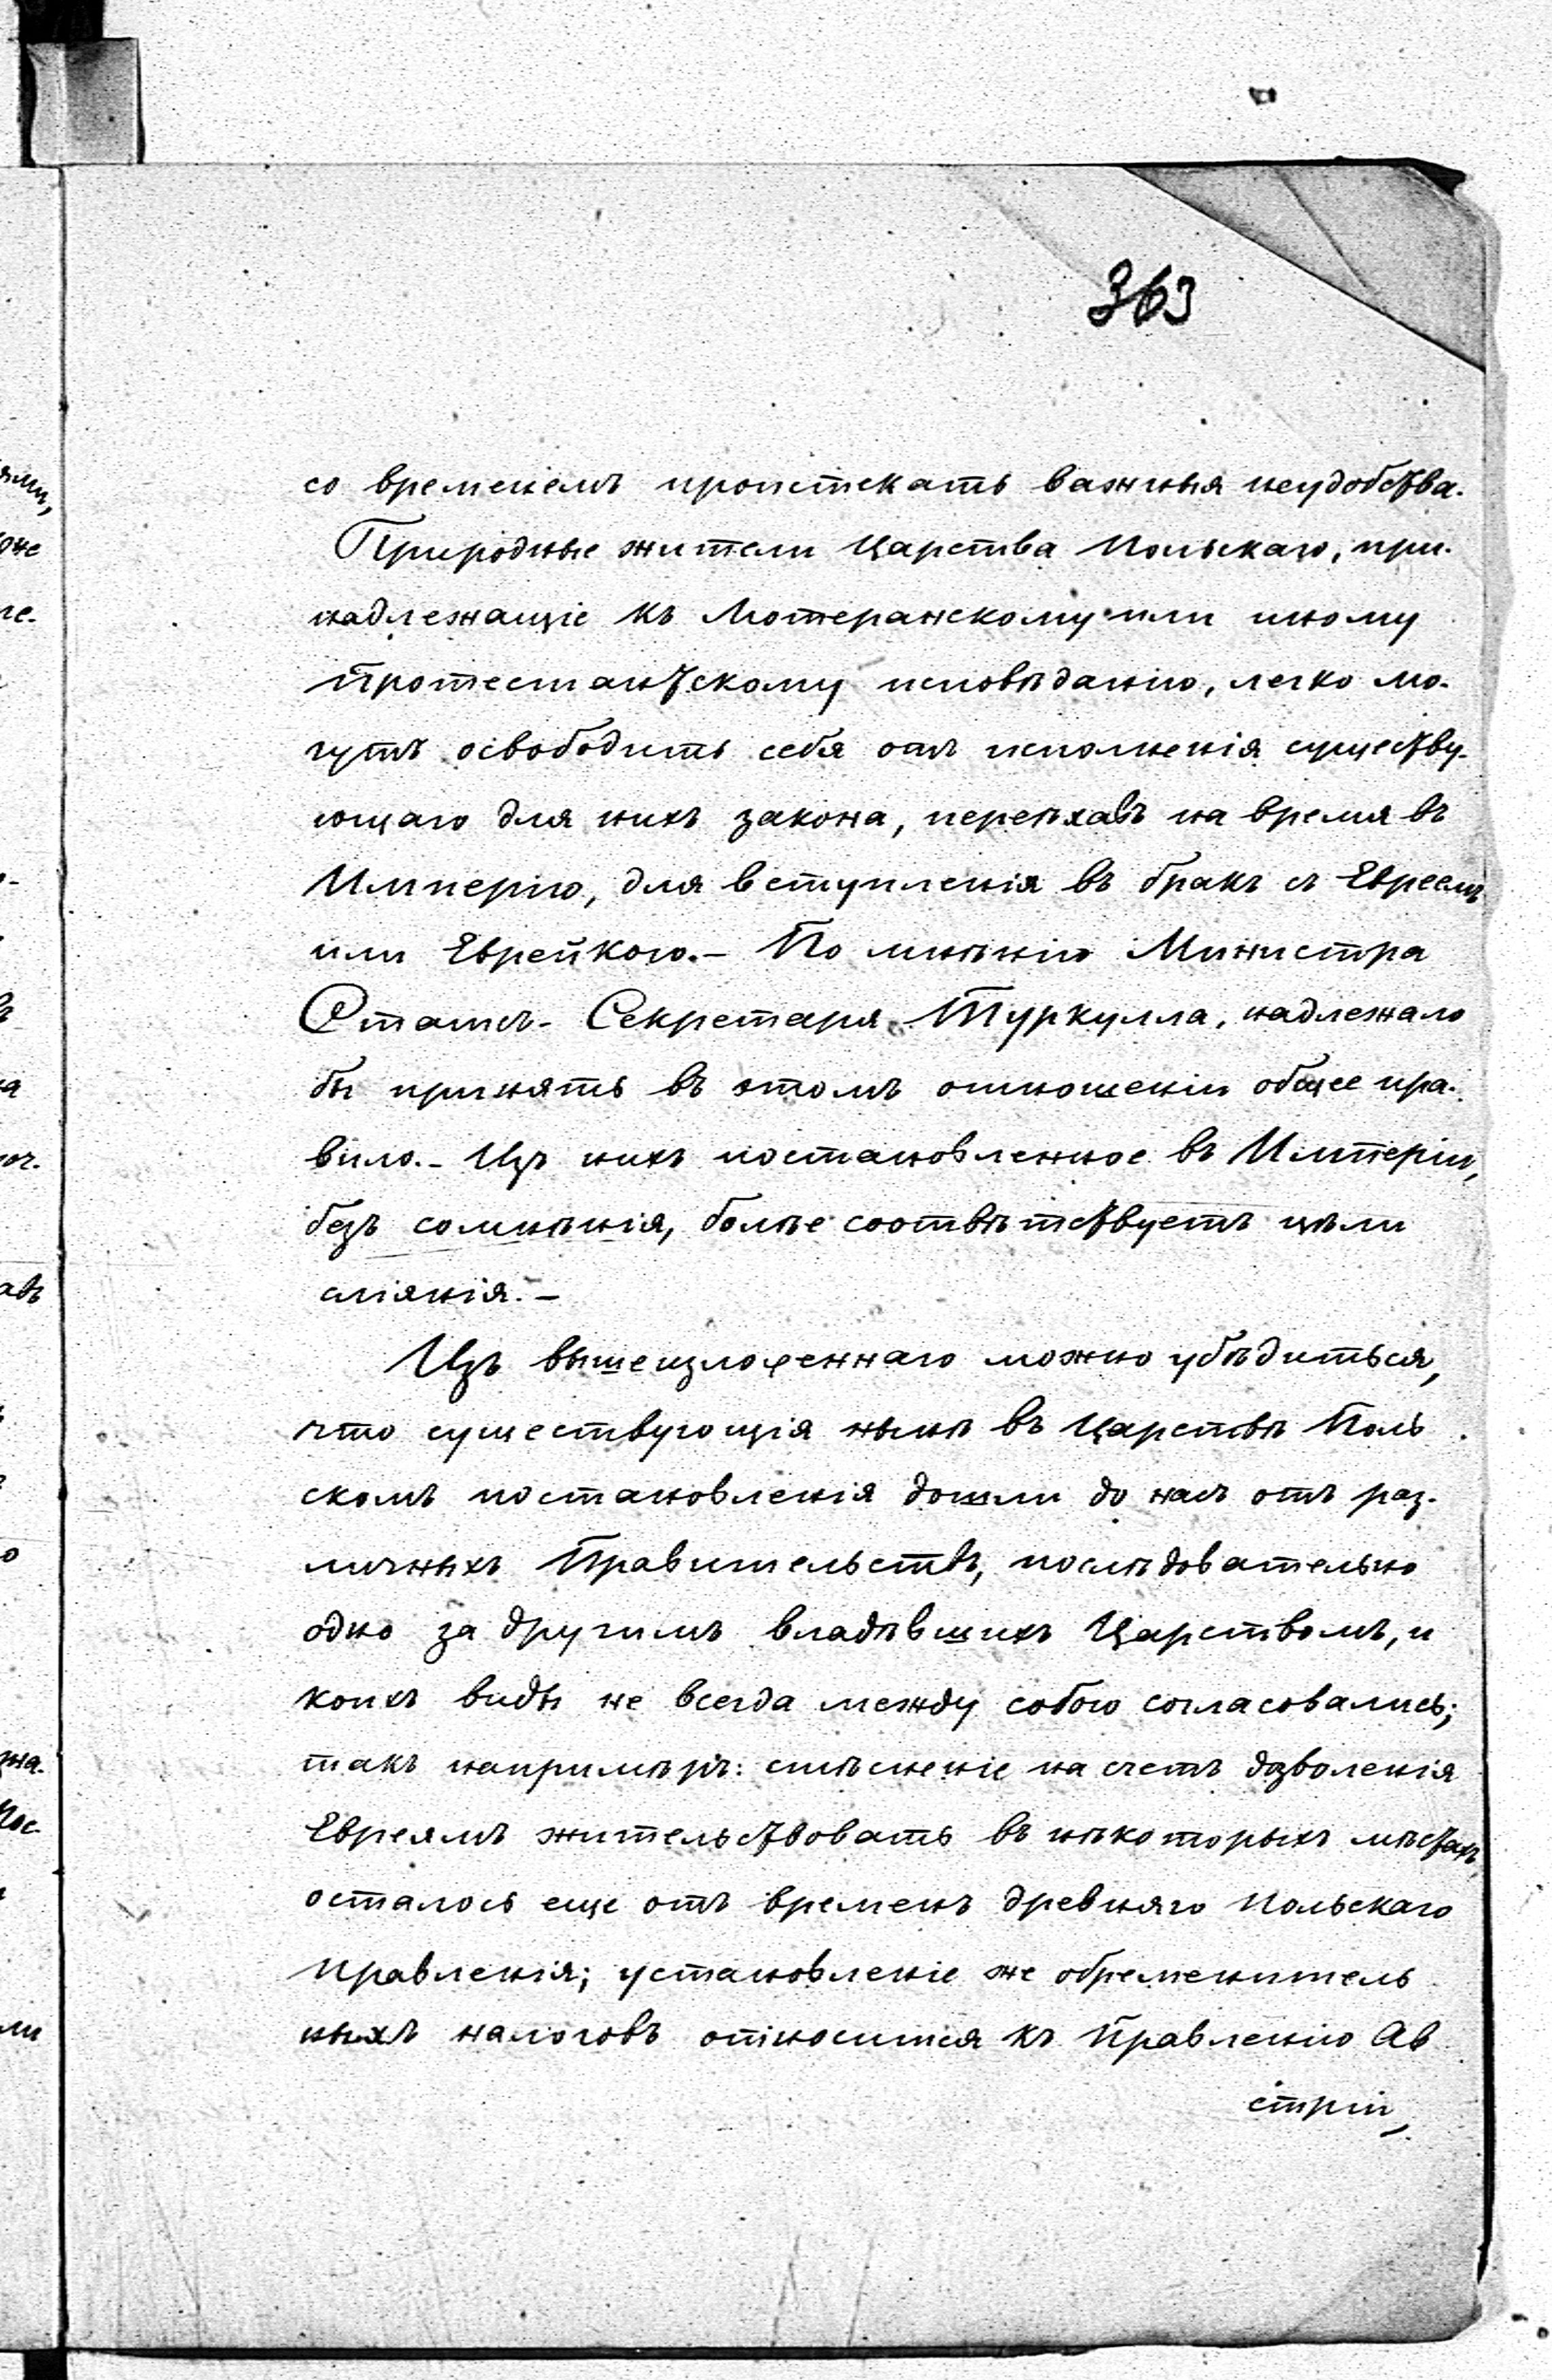 363
со временемъ проистекать важныя неудобства.
Природные жители Царства Польскаго, при-
надлежащіе къ Лютеранскому или иному
протестантскому исповѣданію, легко мо-
гутъ освободить себя отъ исполненія существу-
ющаго для нихъ закона, переѣхавъ на время въ
Имперію, для вступленія въ бракъ съ Евреемъ
или Еврейкою.- По мнѣнію Министра
Статсъ-Секретаря Туркулла, надлежало
бы принять въ этомъ отношеніи общее пра-
вило.- Изъ нихъ постановленное въ Имперіи,
безъ сомнѣнія, болѣе соотвѣтствуетъ цѣли
сліянія.-
Изъ вышеизложеннаго можно убѣдиться,
что существующія нынѣ въ Царствѣ Поль
скомъ постановленія дошли до насъ отъ раз-
личныхъ Правительствъ, послѣдовательно
одно за другимъ владѣвшихъ Царствомъ, и
коихъ виды не всегда между собою согласовались;
такъ напримѣръ: стѣсненіе на счетъ дозволенія
Евреямъ жительствовать въ нѣкоторыхъ мѣстахъ
осталось еще отъ временъ древняго Польскаго
правленія; установленіе же обременитель
ныхъ налоговъ относится къ Правленію Ав
стріи,